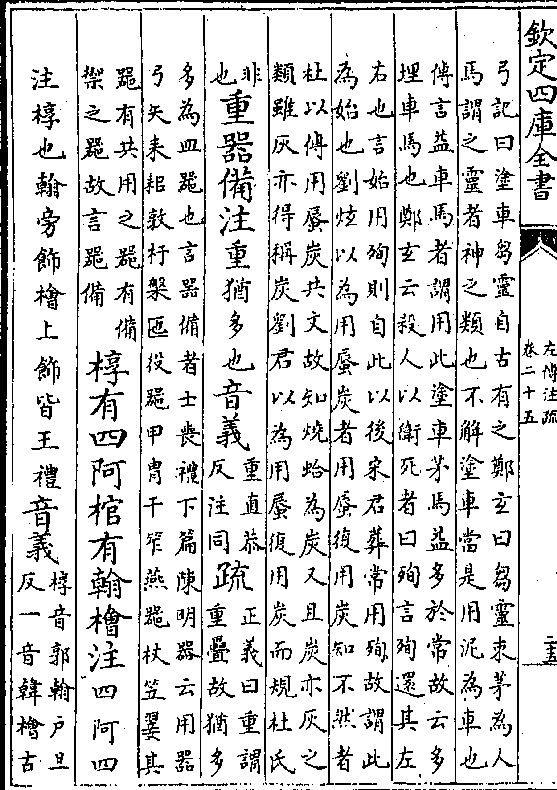 欽定四庫全書
左傳注疏
卷二十五
弓記曰塗車芻靈自古有之鄭玄曰芻靈束茅為人
馬謂之靈者神之類也不解塗車當是用泥為車也
傳言益車馬者謂用此塗車茅馬益多於常故云多
埋車馬也鄭玄云殺人以衛死者曰殉言殉還其左
右也言始用殉則自此以後宋君葬常用殉故謂此
為始也劉炫以為用蜃炭者用蜃復用炭知不然者
杜以傳用蜃炭共文故知燒蛤為炭又且炭亦灰之
類雖灰亦得稱炭劉君以為用蜃復用炭而規杜氏
非
也
重器備注重猶多也音義
重直恭
反注同
疏
正義曰重謂
重疊故猶多
多為皿器也言器備者士喪禮下篇陳明器云用器
弓矢耒耜敦杅槃匜役器甲冑干笮燕器杖笠翣其
器有共用之器有備
禦之器故言器備
椁有四阿棺有翰檜注四阿四
注椁也翰旁飾檜上飾皆王禮音義
椁音郭翰户旦
反一音韓檜古